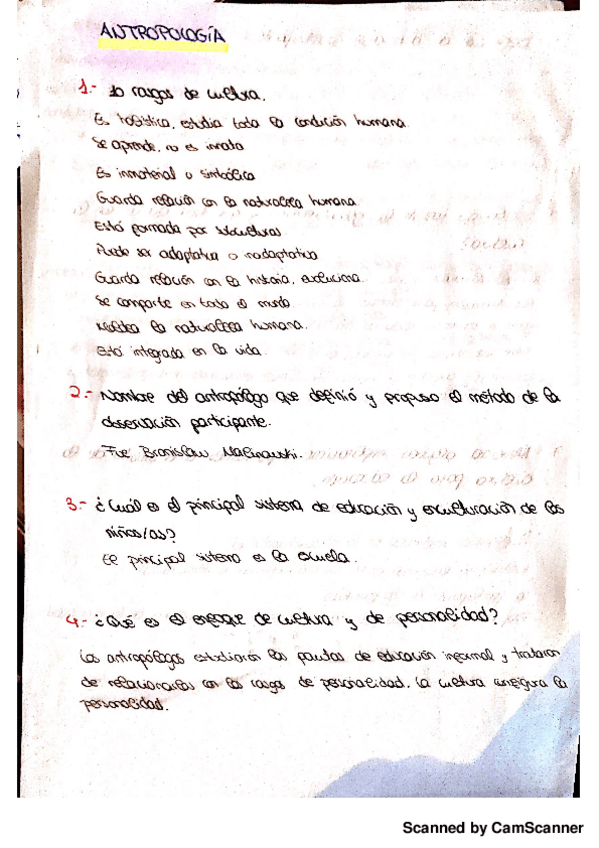 ANTROPOLOGÍA
1.- 10 rasgos de cultura.
Es holística, estudia toda la condición humana.
Se aprende, no es innata
Es inmaterial o simbólica
Guarda relación con la naturaleza humana
Está formada por subculturas
Puede ser adaptativa o inadaptativa
Guarda relación con la historia, evoluciona.
Se comparte en todo el mundo
Moldea la naturaleza humana.
Está integrada en la vida.
2.- Nombre del antropólogo que definió y propuso el método de la
observación participante.
Fue Bronislaw Malinowski.
3.- ¿Cuál es el principal sistema de educación y enculturación de los
niños/as?
El principal sistema es la escuela.
4.- ¿Qué es el enfoque de cultura y de personalidad?
Los antropólogos estudiaron las pautas de educación informal y trataron
de relacionarlas con los rasgos de personalidad. La cultura configura la
personalidad.
Scanned by CamScanner